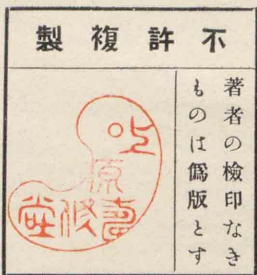 不許複製
著者の檢印なき
ものは僞版とす